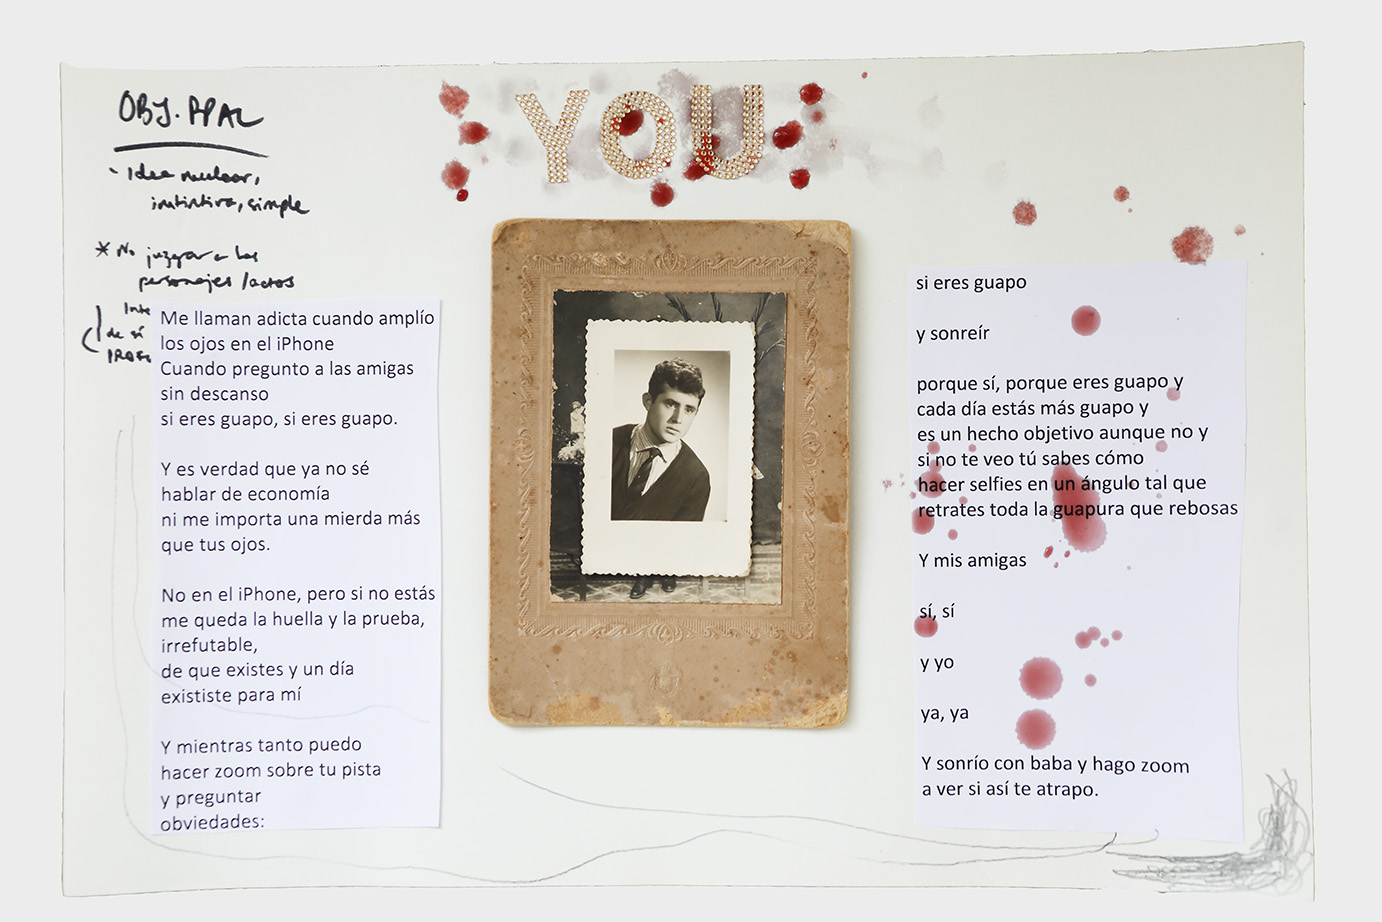 OBJ. PPAL
- Idea nuclear,
instintiva, simple
* No juzgar a los
personajes / actos
Inte
de sí
YOU
Me llaman adicta cuando amplío
los ojos en el iPhone
Cuando pregunto a las amigas
sin descanso
si eres guapo, si eres guapo.
Y es verdad que ya no sé
hablar de economía
ni me importa una mierda más
que tus ojos.
No en el iPhone, pero si no estás
me queda la huella y la prueba,
irrefutable,
de que existes y un día
exististe para mí
Y mientras tanto puedo
hacer zoom sobre tu pista
y preguntar
obviedades:
si eres guapo
y sonreír
porque sí, porque eres guapo y
cada día estás más guapo y
es un hecho objetivo aunque no y
si no te veo tú sabes cómo
hacer selfies en un ángulo tal que
retrates toda la guapura que rebosas
Y mis amigas
sí, sí
y yo
ya, ya
Y sonrío con baba y hago zoom
a ver si así te atrapo.